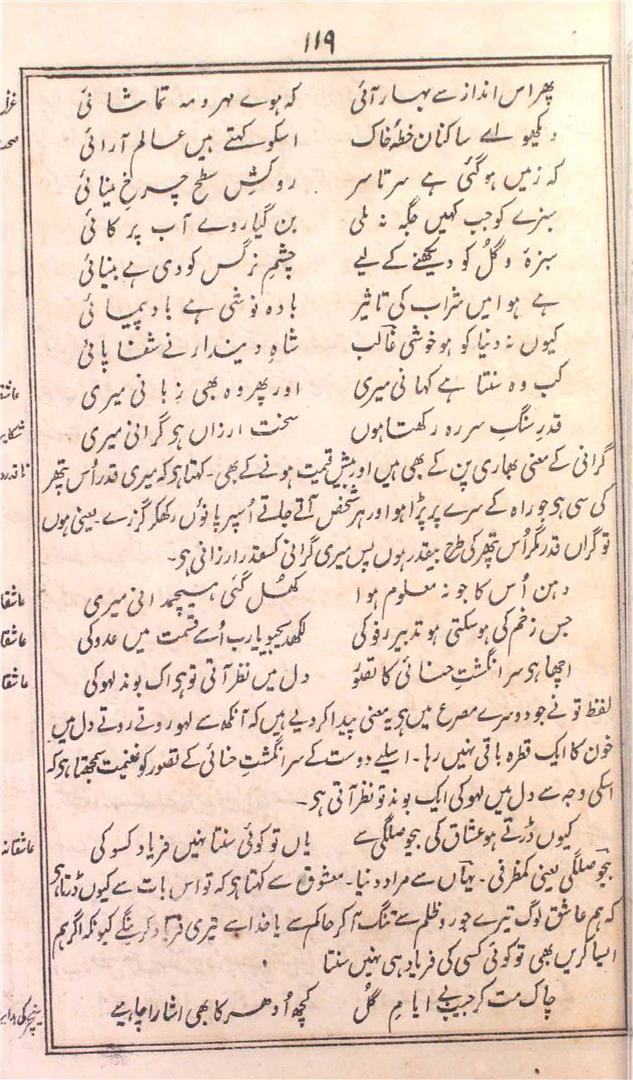 ۱۱۹
پھر اس انداز سے بہار آئی کہ ہوے مہر و مہ تماشائی
دیکھیو اے ساکنان خطۂ خاک اسکو کہتے ہیں عالم آرائی
کہ زمیں ہو گئی ہے سر تا سر روکشِ سطح چرخِ مینائی
سبزے کو جب کہیں جگہ نہ ملی بن گیا روے آب پر کائی
سبزۂ و گلُ کو دیکھنے کے لیے چشمِ نرگس کو دی ہے بینائی
ہے ہوا میں شراب کی تاثیر بادہ نوشی ہے باد پیمائی
کیوں نہ دنیا کو ہو خوشی غالب شاہِ دیندار نے شفا پائی
کب وہ سنتا ہے کہانی میری اور پھر وہ بھی زبانی میری
قدرِ سنگِ سرِ رہ رکھتا ہوں سخت ارزاں ہی گرانی میری
گرانی کے معنی بھاری پن کے بھی ہیں اور بیش قیمت ہونے کے بھی۔ کہتا ہو کہ میری قدر اُس پتھر
کی سی ہی جو راہ کے سرے پر پڑا ہو اور ہر شخص آتے جاتے اُسپر پانوں رکھکر گزرے۔ یعنی ہوں
تو گراں قدر مگر اُس پتھر کی طرح بیقدر ہوں پس میری گرانی کسقدر ارزانی ہی۔
دہن اُس کا جو نہ معلوم ہوا کھُل گئی ہیچمدانی میری
جس زخم کی ہو سکتی ہو تدبیر رفو کی لکھدیجیو یارب اُسے قسمت میں عدو کی
اچھا ہی سر انگشتِ حنائی کا تصوّر دل میں نظر آتی تو ہی اک بوند لہو کی
لفظ تو نے جو دوسرے مصرع میں ہی یہ معنی پیدا کر دیے ہیں کہ آنکھ سے لہو روتے روتے دل میں
خون کا ایک قطرہ باقی نہیں رہا۔ اسلیے دوست کے سر انگشتِ حنائی کے تصور کو غنیمت سمجھتا ہی کہ
اسکی وجہ سے دل میں لہو کی ایک بوند تو نظر آتی ہی۔
کیوں ڈرتے ہو عشاق کی بیحوصلگی سے یاں تو کوئی سنتا نہیں فریاد کسو کی
بیحوصلگی یعنی کمظرفی۔ یہاں سے مراد دنیا۔ معشوق سے کہتا ہو کہ تو اس بات سے کیوں ڈرتا ہی
کہ ہم عاشق لوگ تیرے جور و ظلم سے تنگ آ کر حاکم سے یا خدا سے تیری فریاد کرینگے کیونکہ اگر ہم
ایسا کریں بھی تو کوئی کسی کی فریاد ہی نہیں سنتا
چاک مت کر جیب بے ایامِ گلُ کچھ اُدھر کا بھی اشارا چاہیے
عاشقانہ